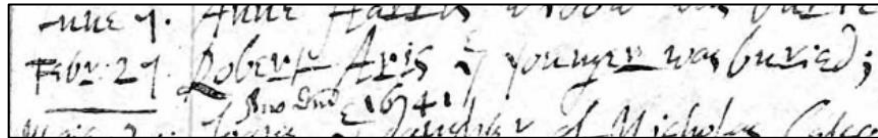 June 7. Anne Harris widow was buried
Febr: 27. Robert Aris ye younger was buried;
Ano Dni 1674
daughter of Micholas